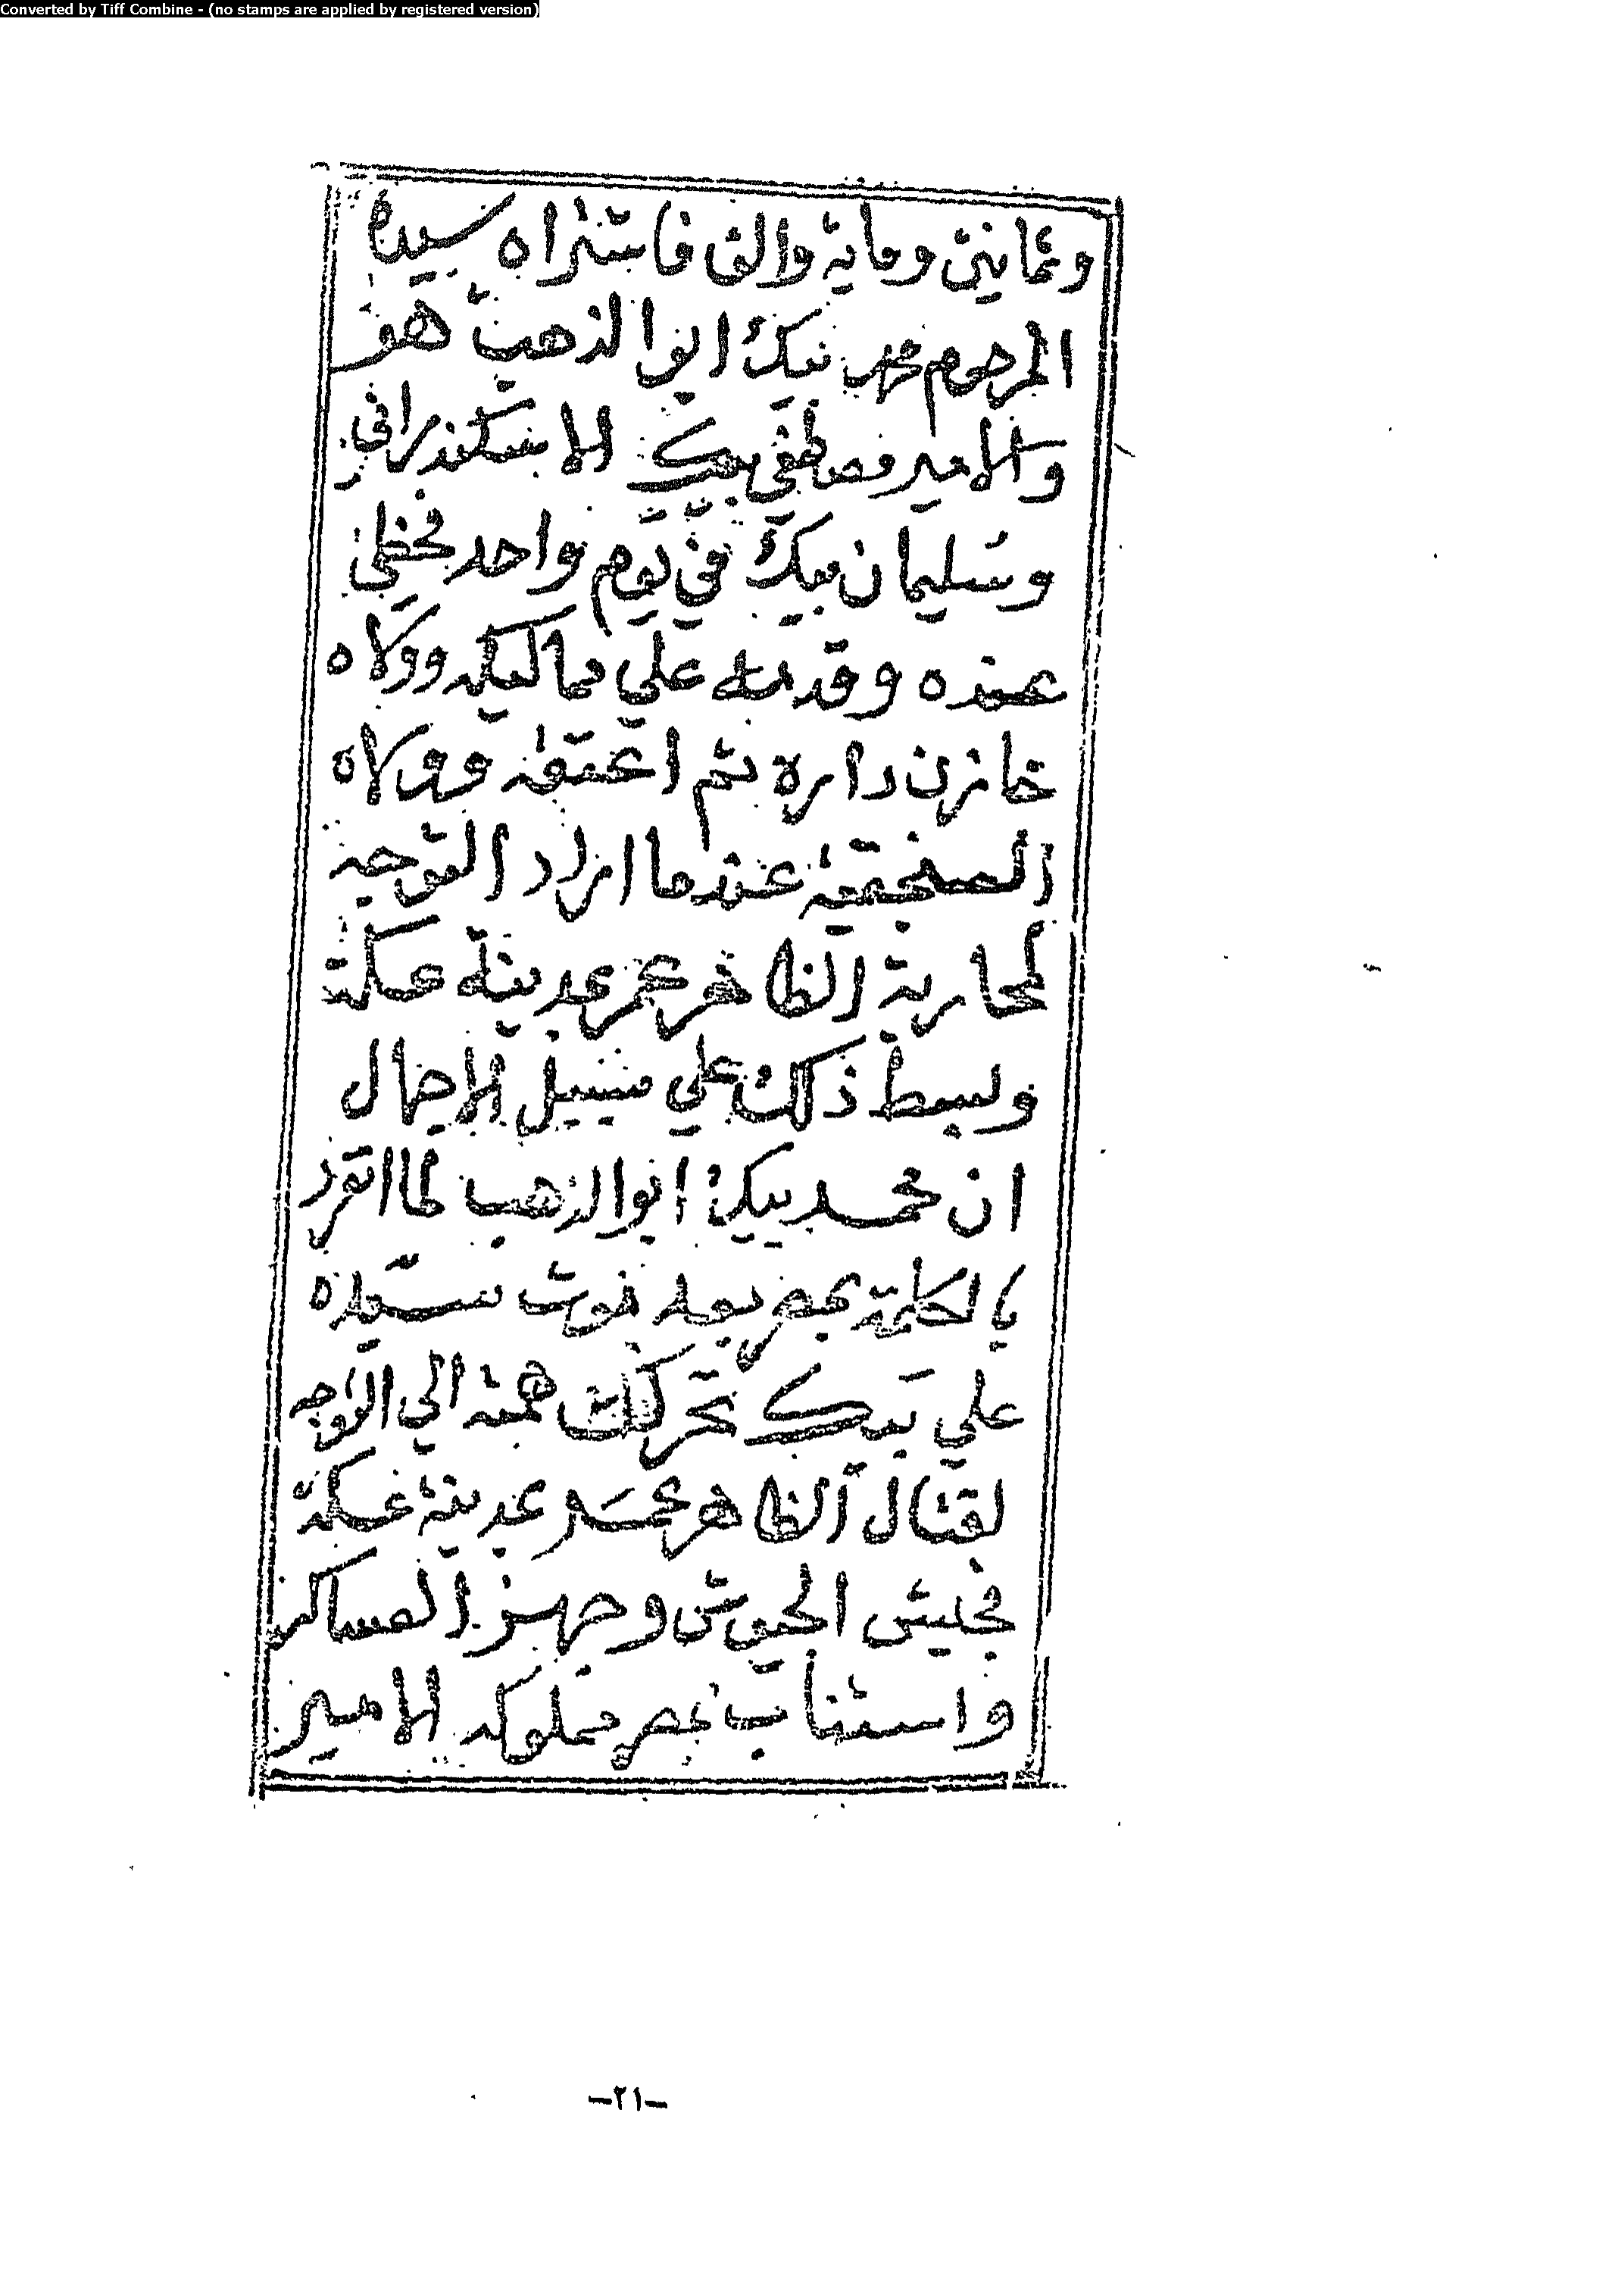 Converted by Tiff Combine - (no stamps are applied by registered version)
وثمانين وماية والف فاشتراه سيده
المرحوم محمد بيك ابوا الذهب هو
والامير مصطفي بيك الاسكندراني
وسليمان بيك في يوم واحد فحظي
عنده وقدمه علي مماليكه وولاه
خازن داره ثم اعتقه وولاه
الصنجقية عندما اراد التوجه
لمحاربة الظاهر عمر بمدينة عكة
وبسط ذلك علي سبيل الاجمال
ان محمد بيك ابوا الذهب لما انفرد
بالكلمة بمصر بعد موت سيده
علي بيك تحركت همته الي التوجه
لقتال الظاهر عمر بمدينة عكة
فجيش الجيوش وجهز العساكر
واستناب بمصر مملوكه الامير
-٢١-